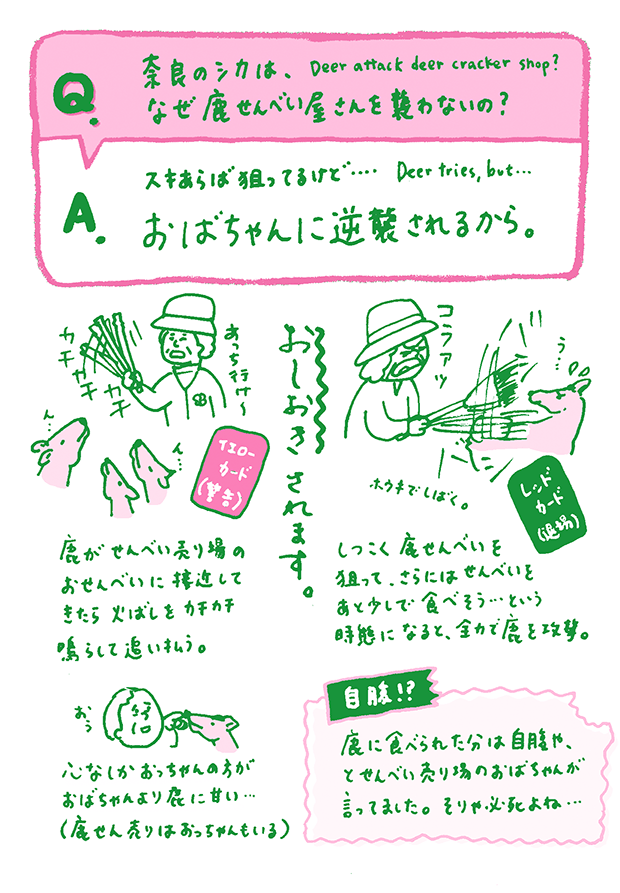 Q.
奈良のシカは、 Deer attack deer cracker shop?
なぜ鹿せんべい屋さんを襲わないの？
A.
スキあらば狙ってるけど…. Deer tries, but...
おばちゃんに逆襲されるから。
おしおきされます。
カチ
カチ
カチ
あっち行け〜
ん…
ん…
イエロー
カード
(警告)
鹿がせんべい売り場の
おせんべいに接近して
きたら火ばしをカチカチ
鳴らして追い払う。
コラァッ
う…
ホウキでしばく。
レッド
カード
(退場)
しつこく鹿せんべいを
狙って、さらにはせんべいを
あと少しで食べそう…という
時態になると、全力で鹿を攻撃。
おぅ
心なしかおっちゃんの方が
おばちゃんより鹿に甘い…
(鹿せん売りはおっちゃんもいる)
自腹!?
鹿に食べられた分は自腹や、
とせんべい売り場のおばちゃんが
言ってました。そりゃ必死よね…